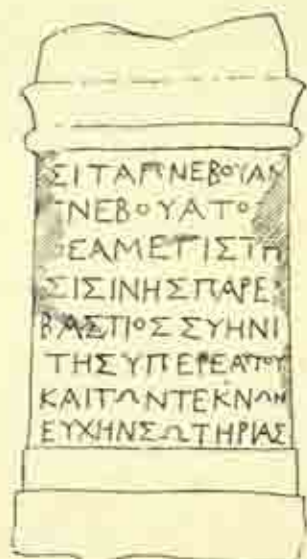 ΣΙΤΑΠΝΕΒΟΥΑΝ
ΤΝΕΒΟΥΑΤΟ
ΘΕΑΜΕΓΙΣΤΗ
ΣΙΣΙΝΗΣΠΑΡΕ
ΒΑΣΤΙΟΣΣΥΗΝΙ
ΤΗΣΥΠΕΡΕΑΤΟΥ
ΚΑΙΤΩΝΤΕΚΝΩΝ
ΕΥΧΗΝΣΩΤΗΡΙΑΣ